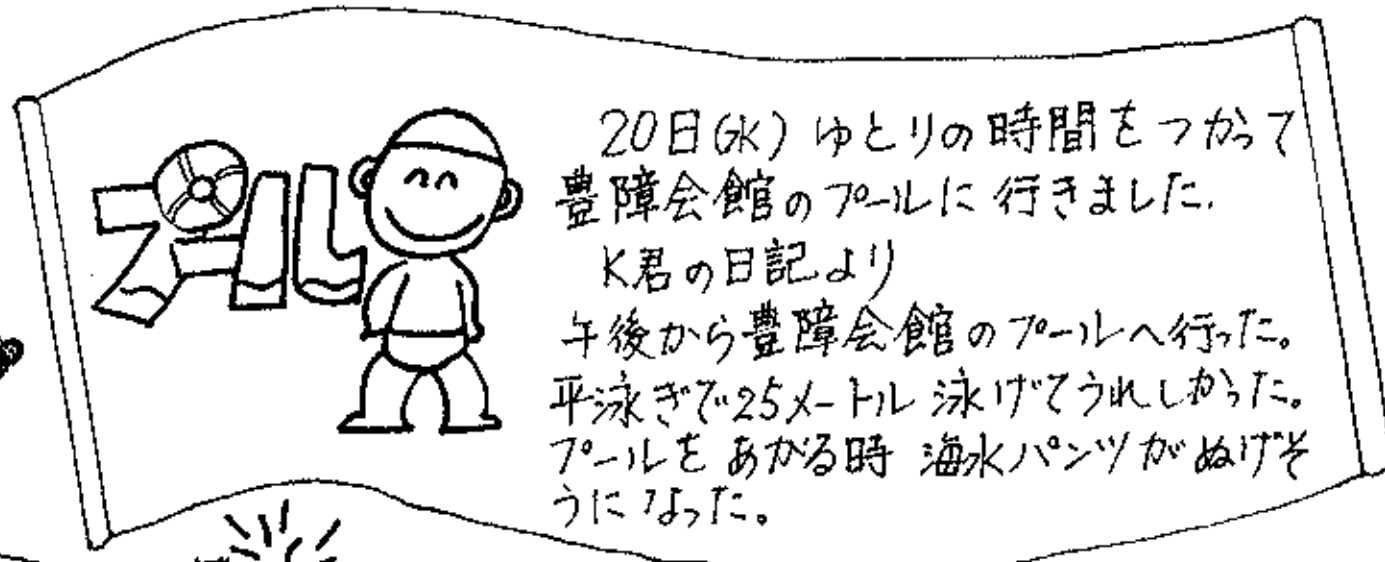 プール
20日(水) ゆとりの時間をつかって
豊障会館のプールに行きました.
K君の日記より
午後から豊障会館のプールへ行った。
平泳ぎで25メートル泳げてうれしかった。
プールをあがる時 海水パンツがぬげそ
うになった。